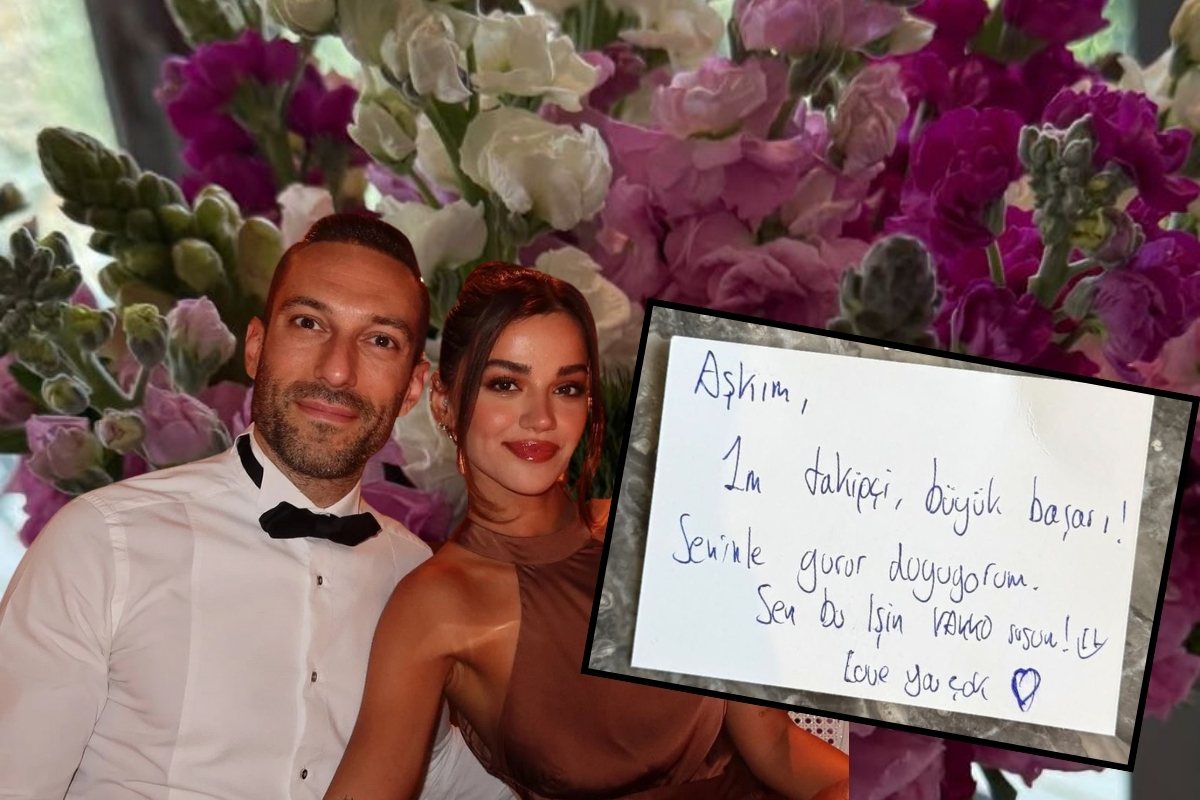 Aşkım,
1m takipçi, büyük başarı!
Seninle gurur duyuyorum.
Sen bu işin VAKKO susun!
Love you çok ♡